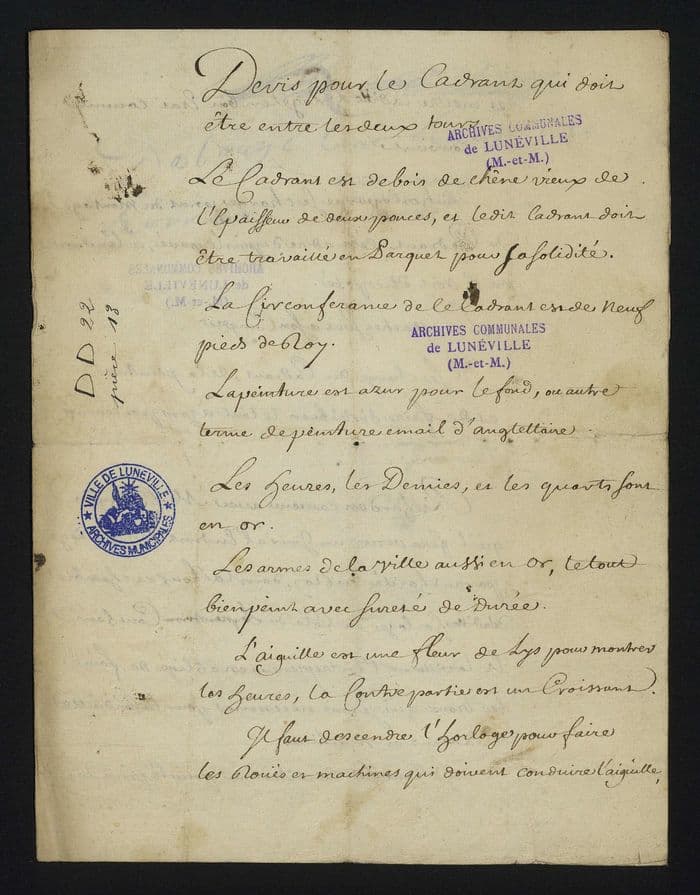 Devis pour le Cadrant qui doit
être entre les deux tours
ARCHIVES COMMUNALES
de LUNÉVILLE
(M.-et-M.)
Le Cadrant est de bois de chêne vieux de
l'Epaisseur de deux pouces, et ledit Cadrant doit
être travaillé en Parquet pour sa solidité.
La Circonferance de le Cadrant est de Neuf
pieds de Roy.
ARCHIVES COMMUNALES
de LUNÉVILLE
(M.-et-M.)
DD 22
pièce 13
La peinture est azur pour le fond, ou autre
terme de peinture email d'anglettaire.
Les heures, les Demies, et les quarts sont
en or.
VILLE DE LUNEVILLE
ARCHIVES MUNICIPALES
Les armes de la ville aussi en Or, le tout
bien peint avec sureté de Durée.
L'aiguille est une fleur de Lys pour montrer
les Heures, la Contre partie est un Croissant.
Il faut descendre l'Horloge pour faire
les Roües et machines qui doivent conduire l'aiguille,